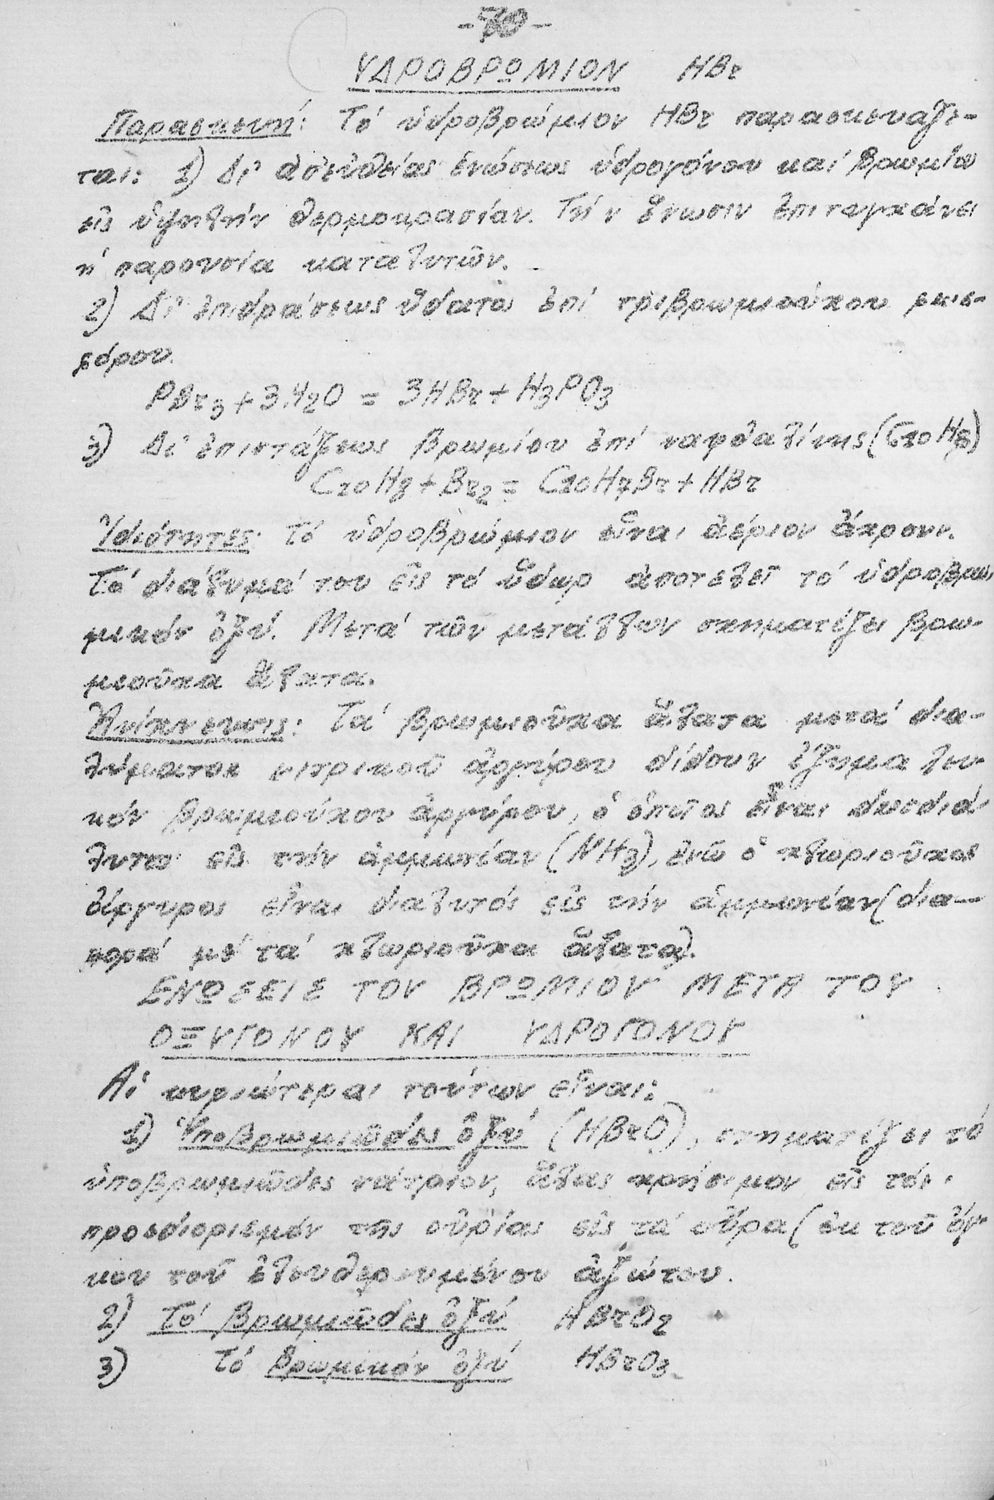 -70-
ΥΔΡΟΒΡΩΜΙΟΝ HBr
Παρασκευή: Τό ὑδροβρώμιον HBr παρασκευάζε-
ται: 1) Δι' ἀπευθείας ἑνώσεως ὑδρογόνου καί βρωμίου
εἰς ὑψηλήν θερμοκρασίαν. Τήν ἕνωσιν ἐπιταγχάνει
ἡ παρουσία καταλυτῶν.
2) Δι' ἐπιδράσεως ὕδατος ἐπί τριβρωμιούχου φωσ-
φόρου.
PBr3 + 3H2O = 3HBr + H3PO3
3) Δι' ἐπιστάξεως βρωμίου ἐπί ναφθαλίνης (C10H8)
C10H8 + Br2 = C10H7Br + HBr
Ἰδιότητες. Τό ὑδροβρώμιον εἶναι ἀέριον ἄχρουν.
Τό διάλυμά του εἰς τό ὕδωρ ἀποτελεῖ τό ὑδροβρω-
μικόν ὀξύ. Μετά τῶν μετάλλων σχηματίζει βρω-
μιοῦχα ἅλατα.
Ἀνίχνευσις: Τά βρωμιοῦχα ἅλατα μετά δια-
λύματος νιτρικοῦ ἀργύρου δίδουν ἵζημα λευ-
κόν βρωμιούχου ἀργύρου, ὁ ὁποῖος εἶναι δυσδιά-
λυτος εἰς τήν ἀμμωνίαν (NH3), ἐνῶ ὁ χλωριοῦχος
ἄργυρος εἶναι διαλυτός εἰς τήν ἀμμωνίαν (δια-
φορά μέ τά χλωριοῦχα ἅλατα).
ΕΝΩΣΕΙΣ ΤΟΥ ΒΡΩΜΙΟΥ ΜΕΤΑ ΤΟΥ
ΟΞΥΓΟΝΟΥ ΚΑΙ ΥΔΡΟΓΟΝΟΥ
Αἱ κυριώτεραι τούτων εἶναι:
1) Ὑποβρωμιῶδες ὀξύ (HBrO), σχηματίζει τό
ὑποβρωμιῶδες νάτριον, ἅλας χρήσιμον εἰς τόν
προσδιορισμόν τῆς οὐρίας εἰς τά οὖρα (ἐκ τοῦ ὄγ-
κου τοῦ ἐλευθερουμένου ἀζώτου.
2) Τό βρωμιῶδες ὀξύ HBrO2
3) Τό βρωμικόν ὀξύ HBrO3